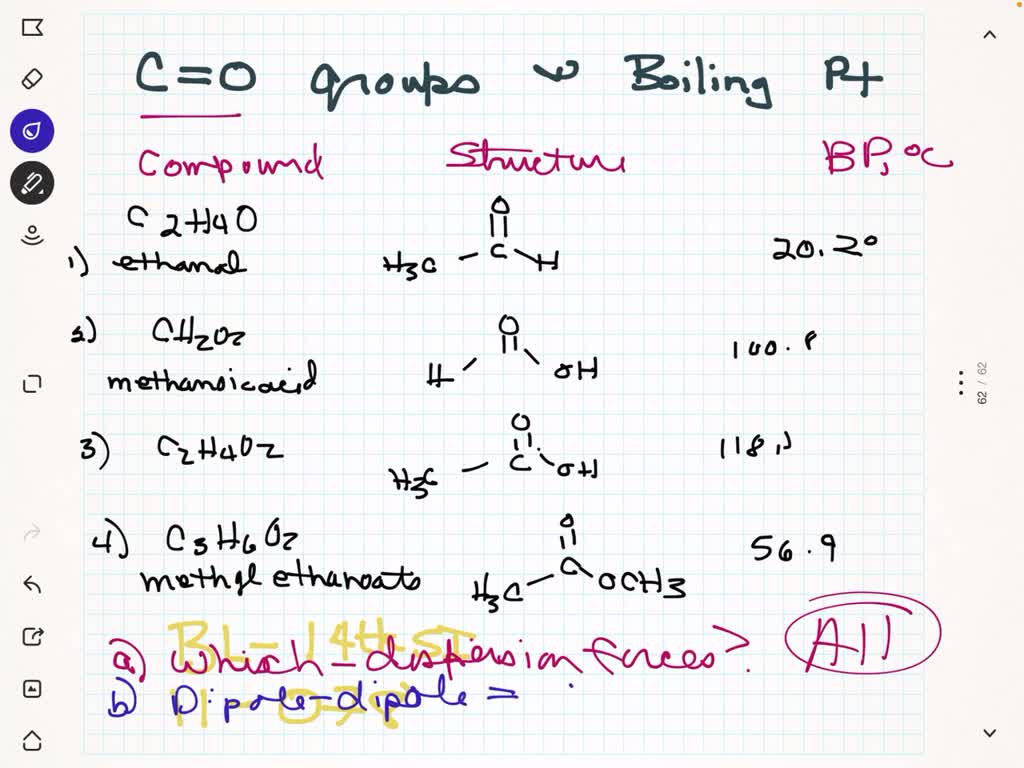 C=O groups Boiling Pt
Compound Structure BP, °C
C2H4O
O
1) ethanal H3C C H 20.2°
2) CH2O2
O
methanoic acid H OH 100.8
3) C2H4O2
O
H3C C OH 118.1
4) C3H6O2
O
56.9
methyl ethanoate H3C C OCH3
a) Which - dispersion forces? All
b) Dipole-dipole =
62 / 62